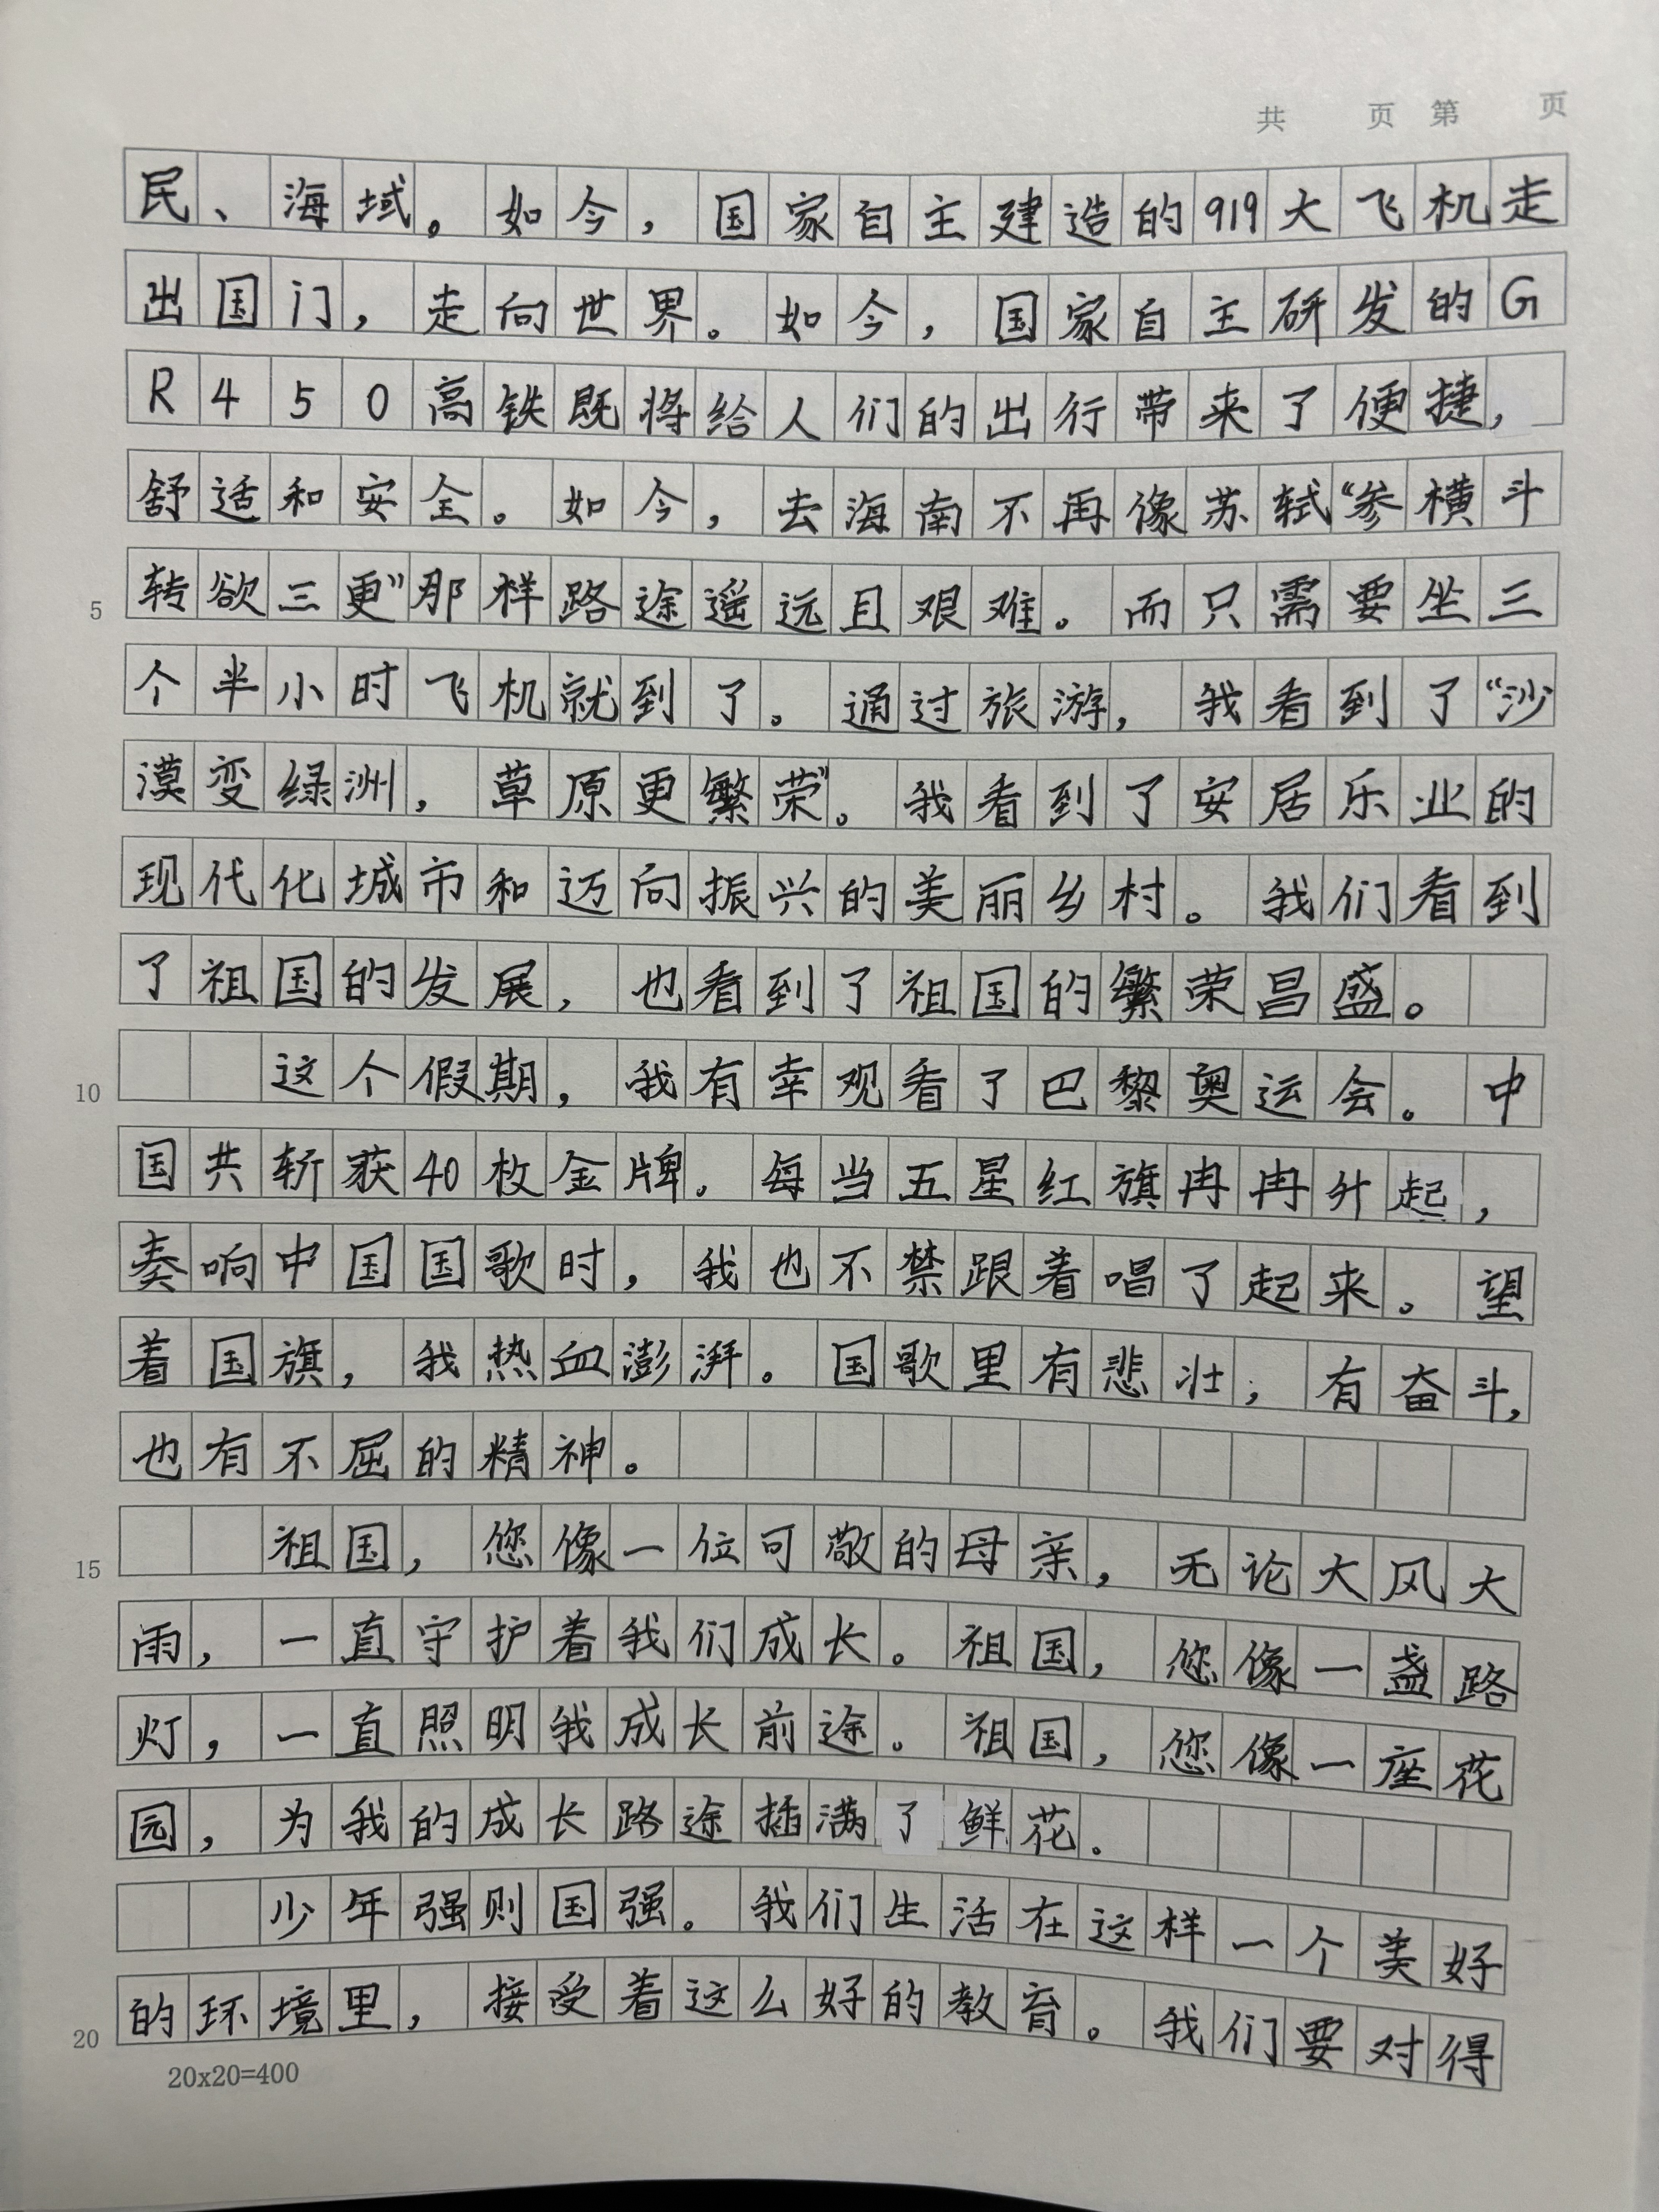 共 页 第 页
民、海域。如今，国家自主建造的919大飞机走
出国门，走向世界。如今，国家自主研发的G
R450高铁既将给人们的出行带来了便捷，
舒适和安全。如今，去海南不再像苏轼“参横斗
5 转欲三更”那样路途遥远且艰难。而只需要坐三
个半小时飞机就到了。通过旅游，我看到了“沙
漠变绿洲，草原更繁荣”。我看到了安居乐业的
现代化城市和迈向振兴的美丽乡村。我们看到
了祖国的发展，也看到了祖国的繁荣昌盛。
10 这个假期，我有幸观看了巴黎奥运会。中
国共斩获40枚金牌。每当五星红旗冉冉升起，
奏响中国国歌时，我也不禁跟着唱了起来。望
着国旗，我热血澎湃。国歌里有悲壮，有奋斗，
也有不屈的精神。
15 祖国，您像一位可敬的母亲，无论大风大
雨，一直守护着我们成长。祖国，您像一盏路
灯，一直照明我成长前途。祖国，您像一座花
园，为我的成长路途插满了鲜花。
少年强则国强。我们生活在这样一个美好
20 的环境里，接受着这么好的教育。我们要对得
20x20=400